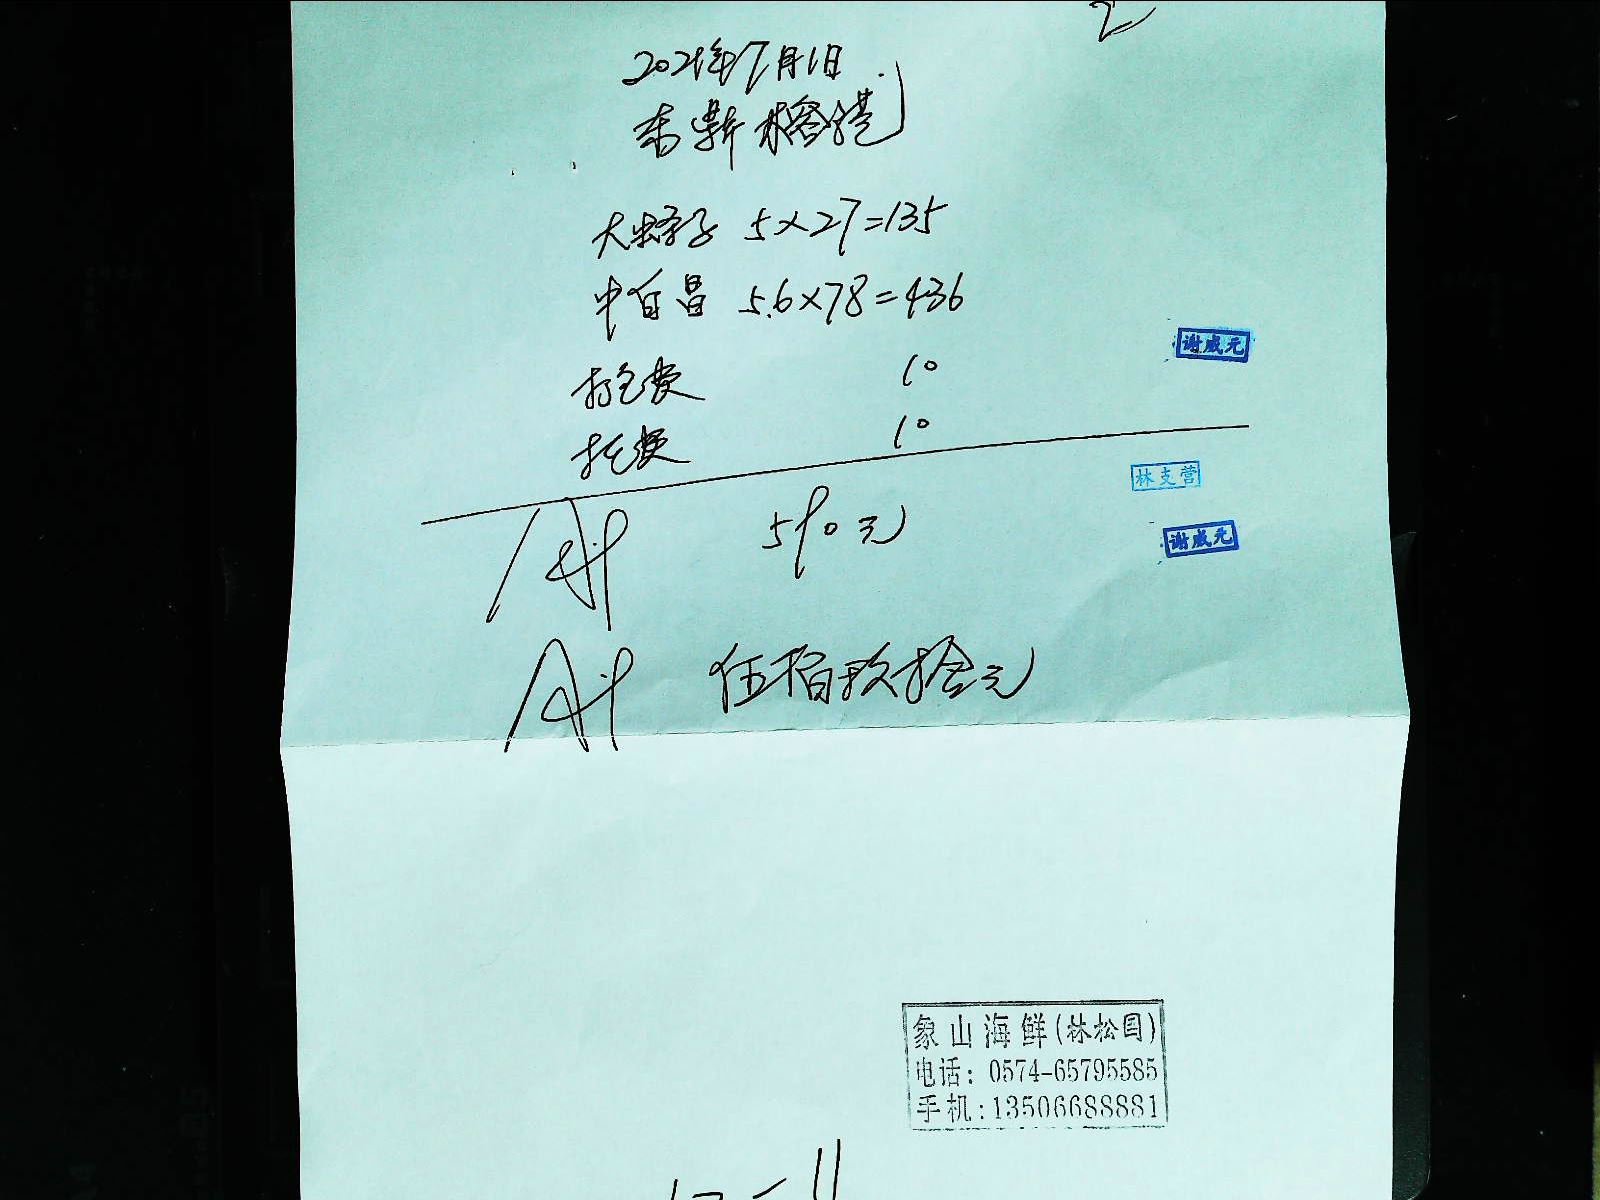 2
2021年7月1日
东新榕港
大虾孑 5×27=135
中白昌 5.6×78=436
打包费 10
托费 10
谢威元
林支营
590元
谢威元
伍佰玖拾元
象山海鲜(林松国)
电话: 0574-65795585
手机:13506688881